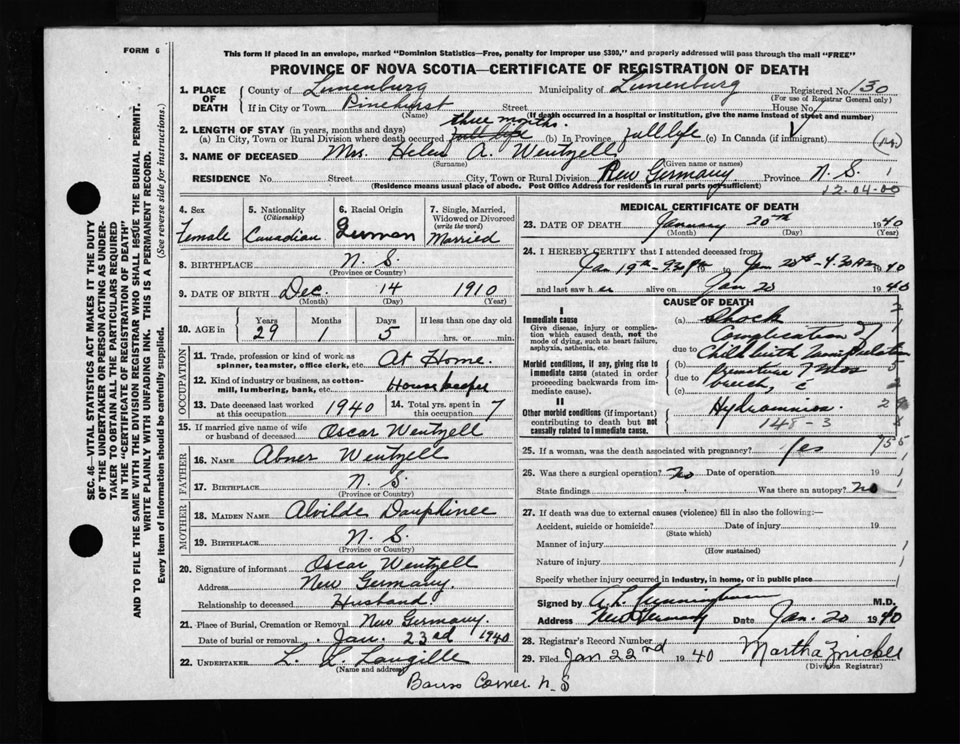 FORM 6
This form if placed in an envelope, marked "Dominion Statistics—Free, penalty for improper use $300," and properly addressed will pass through the mail "FREE"
PROVINCE OF NOVA SCOTIA—CERTIFICATE OF REGISTRATION OF DEATH
1. PLACE OF DEATH
County of Lunenburg Municipality of Lunenburg Registered No. 130
(For use of Registrar General only)
If in City or Town Pinehurst Street House No.
(Name) (If death occurred in a hospital or institution, give the name instead of street and number)
three months.
2. LENGTH OF STAY (in years, months and days)
(a) In City, Town or Rural Division where death occurred full life (b) In Province full life (c) In Canada (if immigrant)
3. NAME OF DECEASED Mrs. Helen A. Wentzell
(Surname) (Given name or names)
RESIDENCE No. Street City, Town or Rural Division New Germany Province N. S.
(Residence means usual place of abode. Post Office Address for residents in rural parts not sufficient)
12-04-00
4. Sex Female
5. Nationality (Citizenship) Canadian
6. Racial Origin German
7. Single, Married, Widowed or Divorced (write the word) Married
8. BIRTHPLACE N. S.
(Province or Country)
9. DATE OF BIRTH Dec. 14 1910
(Month) (Day) (Year)
10. AGE in Years Months Days If less than one day old
29 1 5 hrs. or min.
OCCUPATION
11. Trade, profession or kind of work as spinner, teamster, office clerk, etc. At Home.
12. Kind of industry or business, as cotton-mill, lumbering, bank, etc. Housekeeper
13. Date deceased last worked at this occupation 1940
14. Total yrs. spent in this occupation 7
15. If married give name of wife or husband of deceased Oscar Wentzell
FATHER
16. NAME Abner Wentzell
17. BIRTHPLACE N. S.
(Province or Country)
MOTHER
18. MAIDEN NAME Alvilde Dauphinee
19. BIRTHPLACE N. S.
(Province or Country)
20. Signature of informant Oscar Wentzell
Address New Germany.
Relationship to deceased Husband.
21. Place of Burial, Cremation or Removal New Germany.
Date of burial or removal Jan. 23rd 1940
22. UNDERTAKER L. L. Langille
(Name and address)
Barss Corner N. S
MEDICAL CERTIFICATE OF DEATH
23. DATE OF DEATH January 20th 1940
(Month) (Day) (Year)
24. I HEREBY CERTIFY that I attended deceased from
Jan 19th - 9.30 Pm to Jan 20th - 4.30 A.m 1940
and last saw her alive on Jan 20 1940
CAUSE OF DEATH
I
Immediate cause
Give disease, injury or complication which caused death, not the mode of dying, such as heart failure, asphyxia, asthenia, etc.
(a) Shock
Complication of
due to Child with
Morbid conditions, if any, giving rise to immediate cause (stated in order proceeding backwards from immediate).
due to
(c) breech, c
II
Other morbid conditions (if important) contributing to death but not causally related to immediate cause.
Hydramnios.
148-3
25. If a woman, was the death associated with pregnancy? Yes
26. Was there a surgical operation? No Date of operation 19
State findings Was there an autopsy? No
27. If death was due to external causes (violence) fill in also the following:—
Accident, suicide or homicide? Date of injury 19
(State which)
Manner of injury
(How sustained)
Nature of injury
Specify whether injury occurred in industry, in home, or in public place
Signed by A. L. Cunningham M.D.
Address New Germany Date Jan. 20 1940
28. Registrar's Record Number
29. Filed Jan 22nd 1940 Martha Zwicker
(Division Registrar)
SEC. 46—VITAL STATISTICS ACT MAKES IT THE DUTY
OF THE UNDERTAKER OR PERSON ACTING AS UNDER-
TAKER TO OBTAIN ALL THE PARTICULARS REQUIRED
IN THE "CERTIFICATE OF REGISTRATION OF DEATH"
AND TO FILE THE SAME WITH THE DIVISION REGISTRAR WHO SHALL ISSUE THE BURIAL PERMIT.
WRITE PLAINLY WITH UNFADING INK. THIS IS A PERMANENT RECORD.
Every item of information should be carefully supplied. (See reverse side for instructions.)